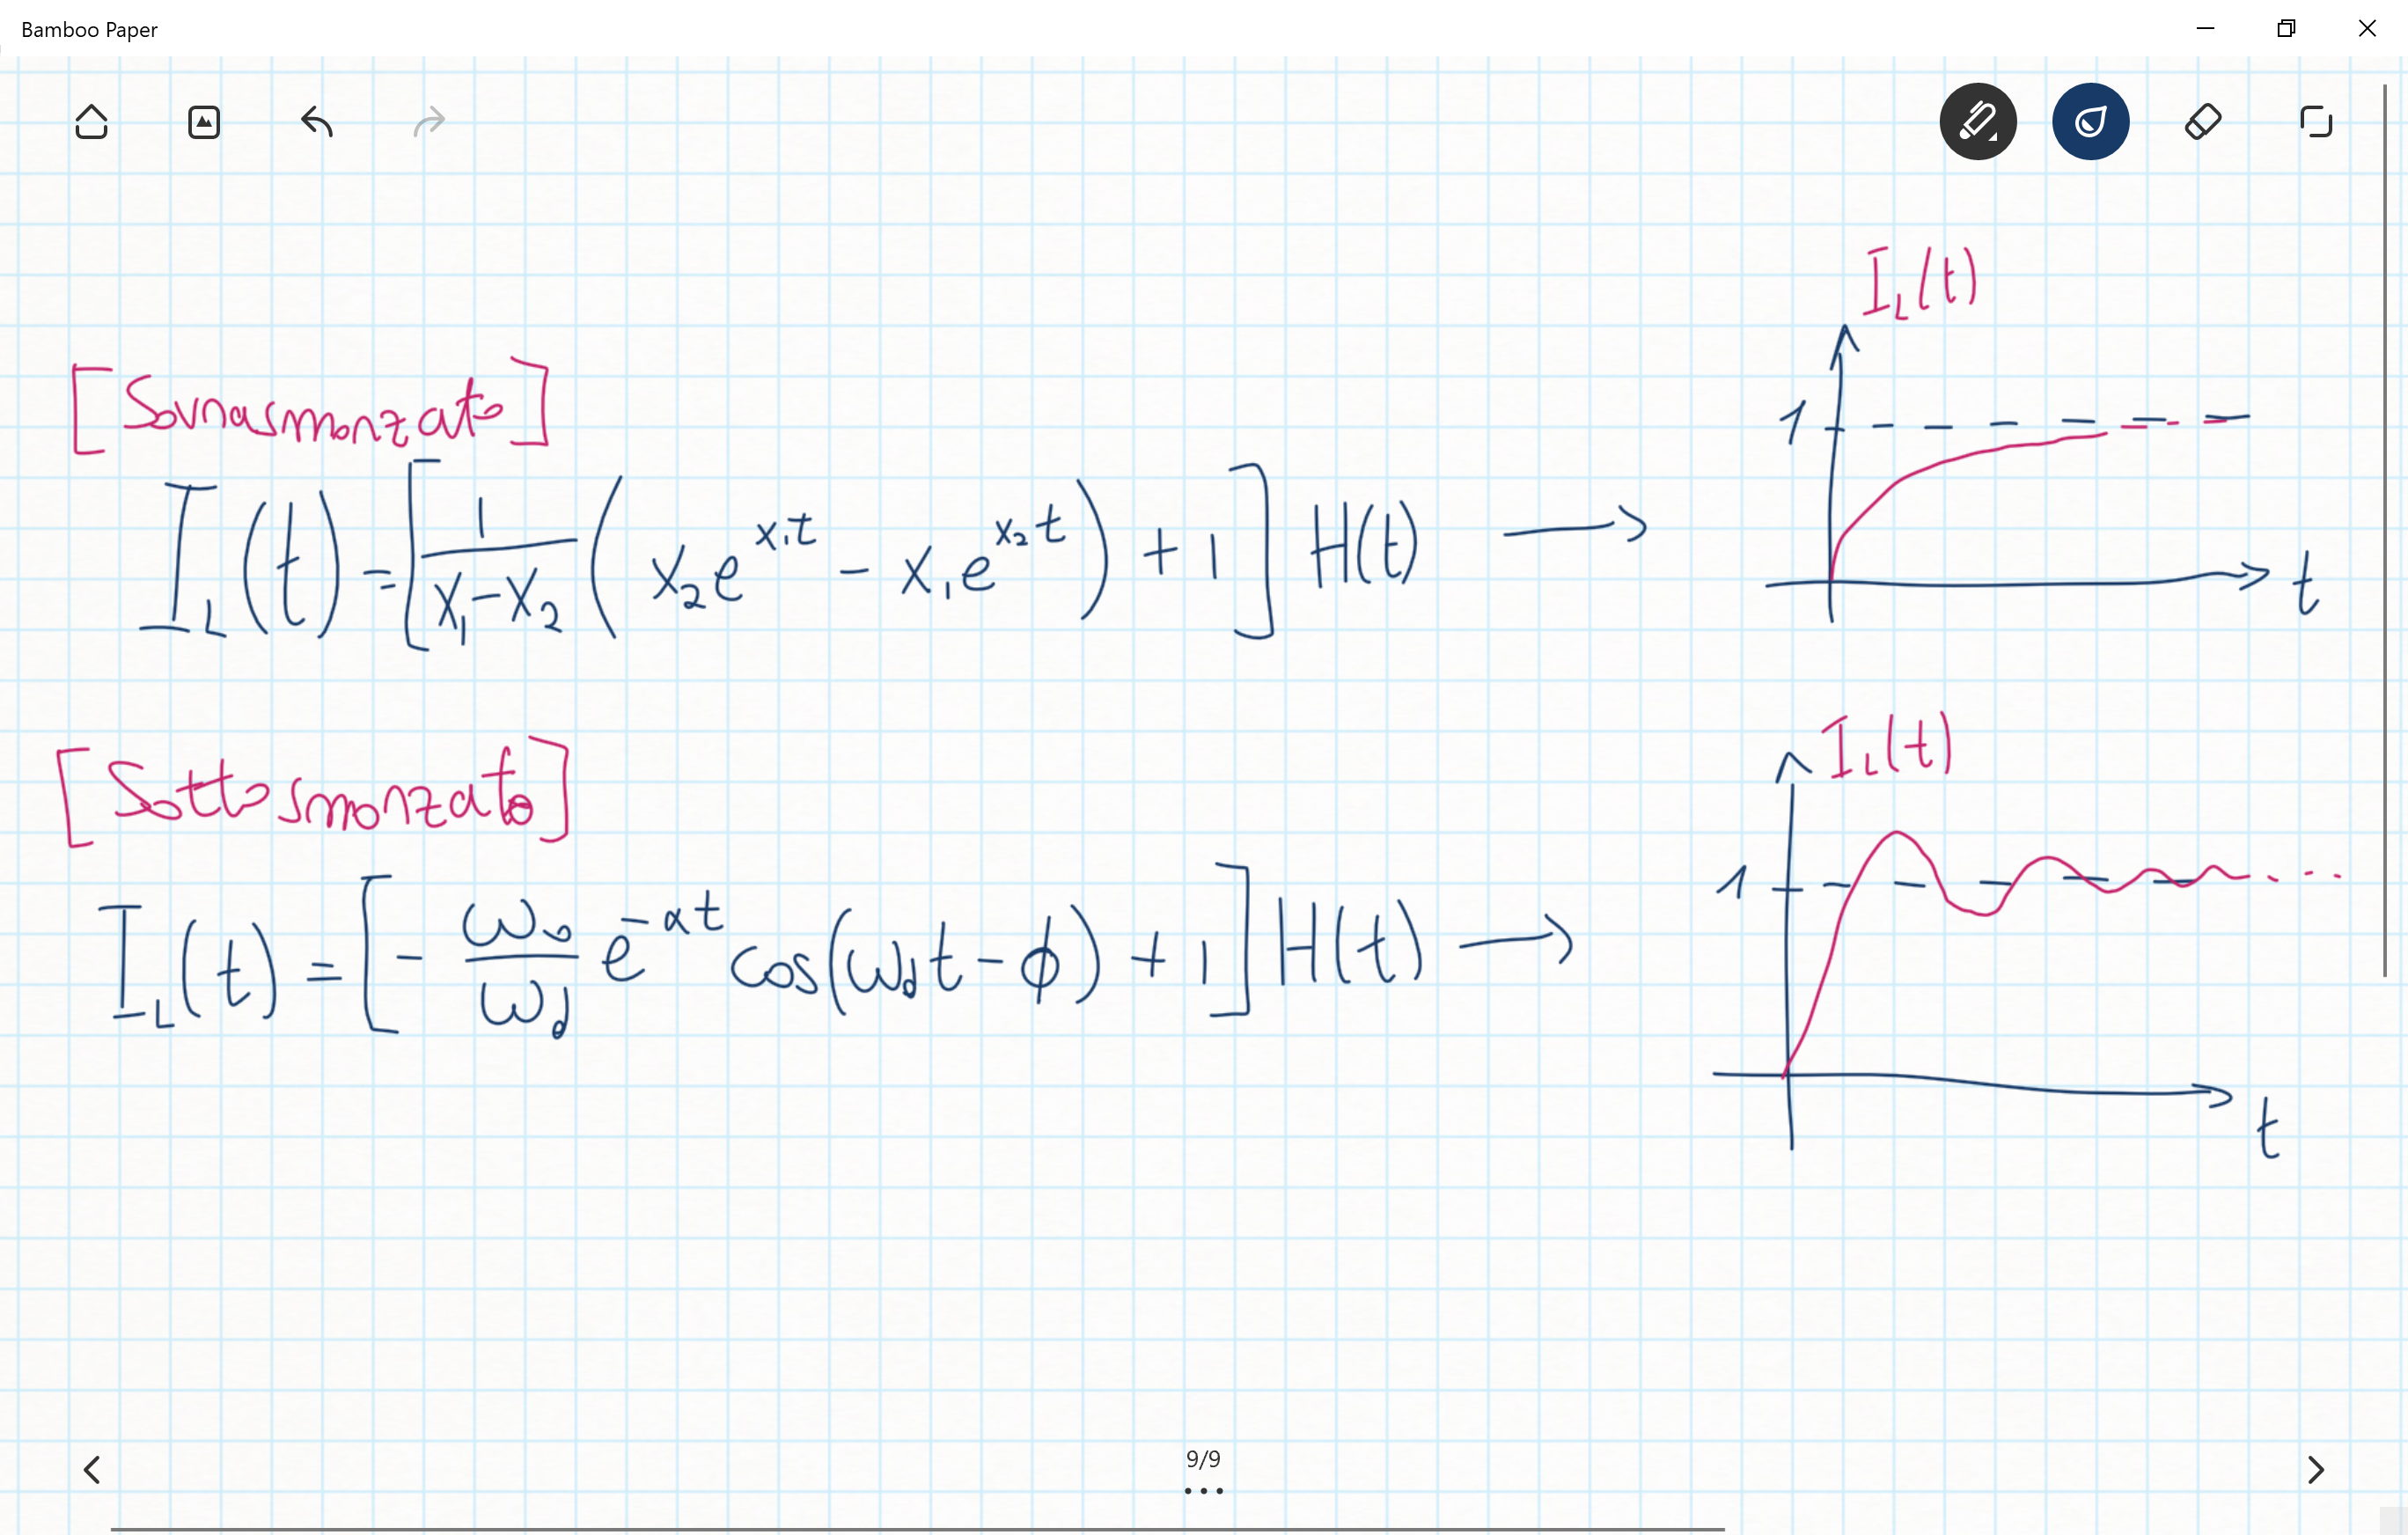 Bamboo Paper
I_L(t)
1
t
[Sovrasmorzato]
I_L(t) = [1/(x₁-x₂) (x₂e^(x₁t) - x₁e^(x₂t)) + 1] H(t) →
I_L(t)
1
t
[Sottosmorzato]
I_L(t) = [-ω₀/ω_d e^(-αt) cos(ω_d t - ϕ) + 1] H(t) →
9/9